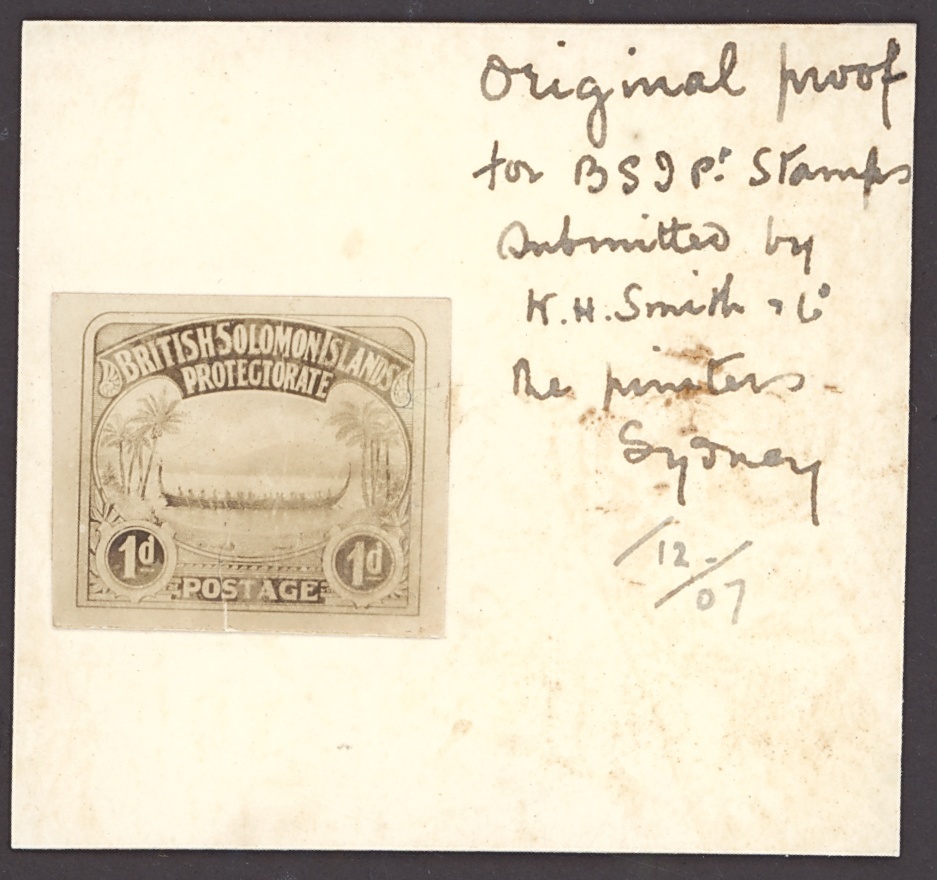 Original proof
for BSIPt. Stamps
submitted by
K.H. Smith & Co
the printers
Sydney
/12-/07
BRITISH SOLOMON ISLANDS
PROTECTORATE
1d
1d
POSTAGE